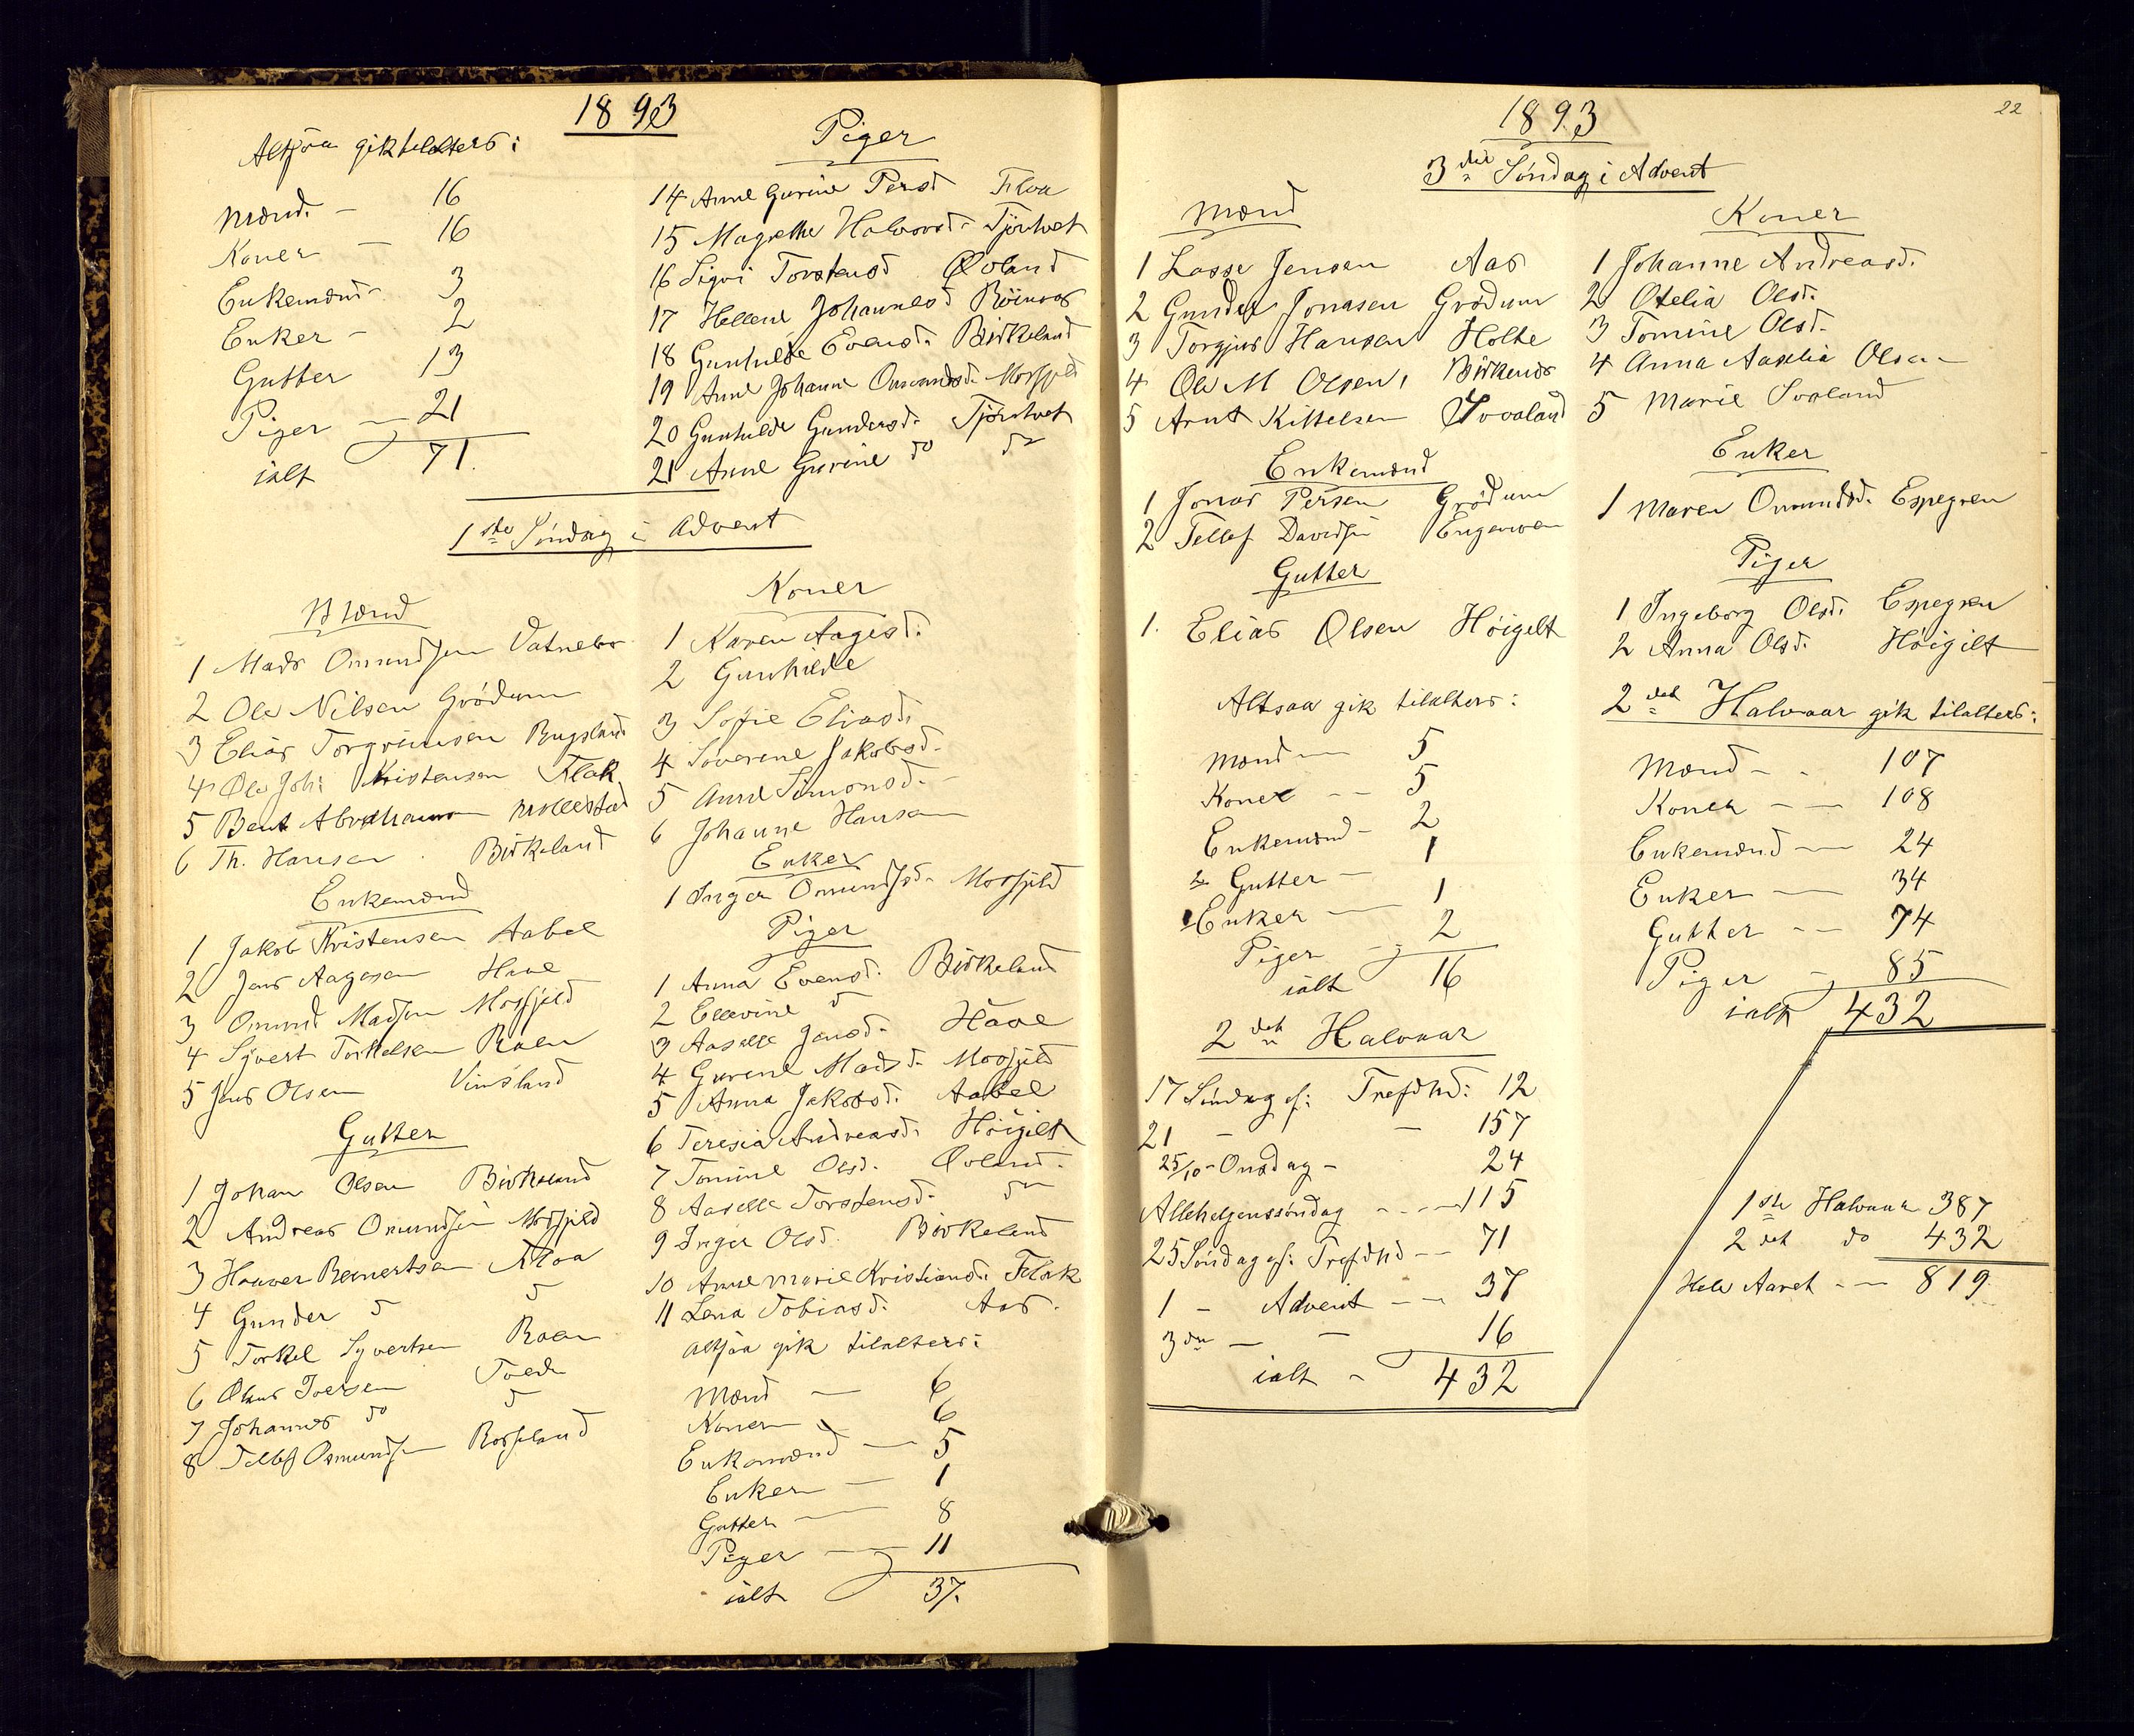 1893
Altsaa gik tilalters:
Mænd. - 16
Koner - 16
Enkemænd - 3
Enker - 2
Gutter 13
Piger - 21
ialt 71.
Piger
14 Anne Gurine Persd Flaa
15 Magrethe Halvorsd. Tjörhvet
16 Sigvi Torstensd Øvland
17 Hellene Johannesd
18 Gunhilde Evensd. Birkeland
19 Anne Johanne Omundsd. Mosfjeld
20 Gunhilde Gundersd. Tjörhvet
21 Anne Gurine do do
1ste Söndag i Advent
Mænd
1 Mads Omundsen Vatnebo
2 Ole Nilsen Grödum
3 Elias Torgrimsen Bugsland
4 Ole Joh: Kristensen Flak
5 Bent Abrahamsen Mollestad
6 Th. Hansen. Birkeland
Enkemænd
1 Jakob Kristensen Aabel
2 Jens Aagesen Have
3 Omund Madsen Mosfjeld
4 Syvert Torkelsen Roen
5 Jens Olsen Vimsland
Gutter
1 Johan Olsen Birkeland
2 Andreas Omundsen Mosfjeld
3 Haaver Bernertsen Flaa
4 Gunder do do
5 Torkel Syvertsen Roen
6 Olaus Iversen Tvede
7 Johannes do do
8 Tellef Osmundsen Rosseland
Koner
1 Karen Aagesd.
2 Gunhilde
3 Sofie Eliasd.
4 Severine Jakobsd.
5 Anne Simonsd.
6 Johanne Hansen
Enker
1 Inger Omundsd. Mosfjeld
Piger
1 Anna Evensd. Birkeland
2 Ellevine do
3 Aaselle Jensd. Have
4 Gurine Madsd. Mosfjeld
5 Anna Jakobsd. Aabel
6 Teresia Andreasd. Höigilt
7 Tomine Olsd. Øvland.
8 Aaselle Torstensd. do
9 Inger Olsd. Birkeland
10 Anne Marie Kristiansd. Flak
11 Lena Tobiasd. Aas.
Altsaa gik tilalters:
Mænd - 6
Koner 6
Enkemænd - 5
Enker - 1
Gutter - 8
Piger - 11
ialt 37.
22
1893
3die Söndag i Advent
Mænd
1 Lasse Jensen Aas
2 Gunder Jonasen Grödum
3 Torgjus Hansen Holte
4 Ole M Olsen, Birkenes
5 Arnt Kittelsen
Enkemænd
1 Jonas Persen Grödum
2 Tellef Davidsen Engemoen
Gutter
1. Elias Olsen Höigilt
Koner
1 Johanne Andreasd.
2 Otelia Olsd.
3 Tomine Olsd.
4 Anna Aaselia Olsen
5 Marie
Enker
1 Maren Omundsd. Espegren
Piger
1 Ingeborg Olsd. Espegren
2 Anna Olsd. Höigilt
Altsaa gik tilalters:
Mænd - 5
Koner - - 5
Enkemænd - 2
Gutter - 1
Enker - 1
Piger - 2
ialt 16
2det Halvaar gik tilalters:
Mænd - - 107
Koner - - 108
Enkemænd - 24
Enker - 34
Gutter - - 74
Piger - 85
ialt 432
2det Halvaar
17 Söndag ef: Trefdhd: 12
21 - - 157
25/10 - Onsdag - 24
Allehelgenssöndag - - - 115
25 Söndag ef: Trefdhd - - 71
1 - Advent - - 37
3die - - 16
ialt - 432
1ste Halvaar 387
2det do 432
Hele Aaret - - 819.